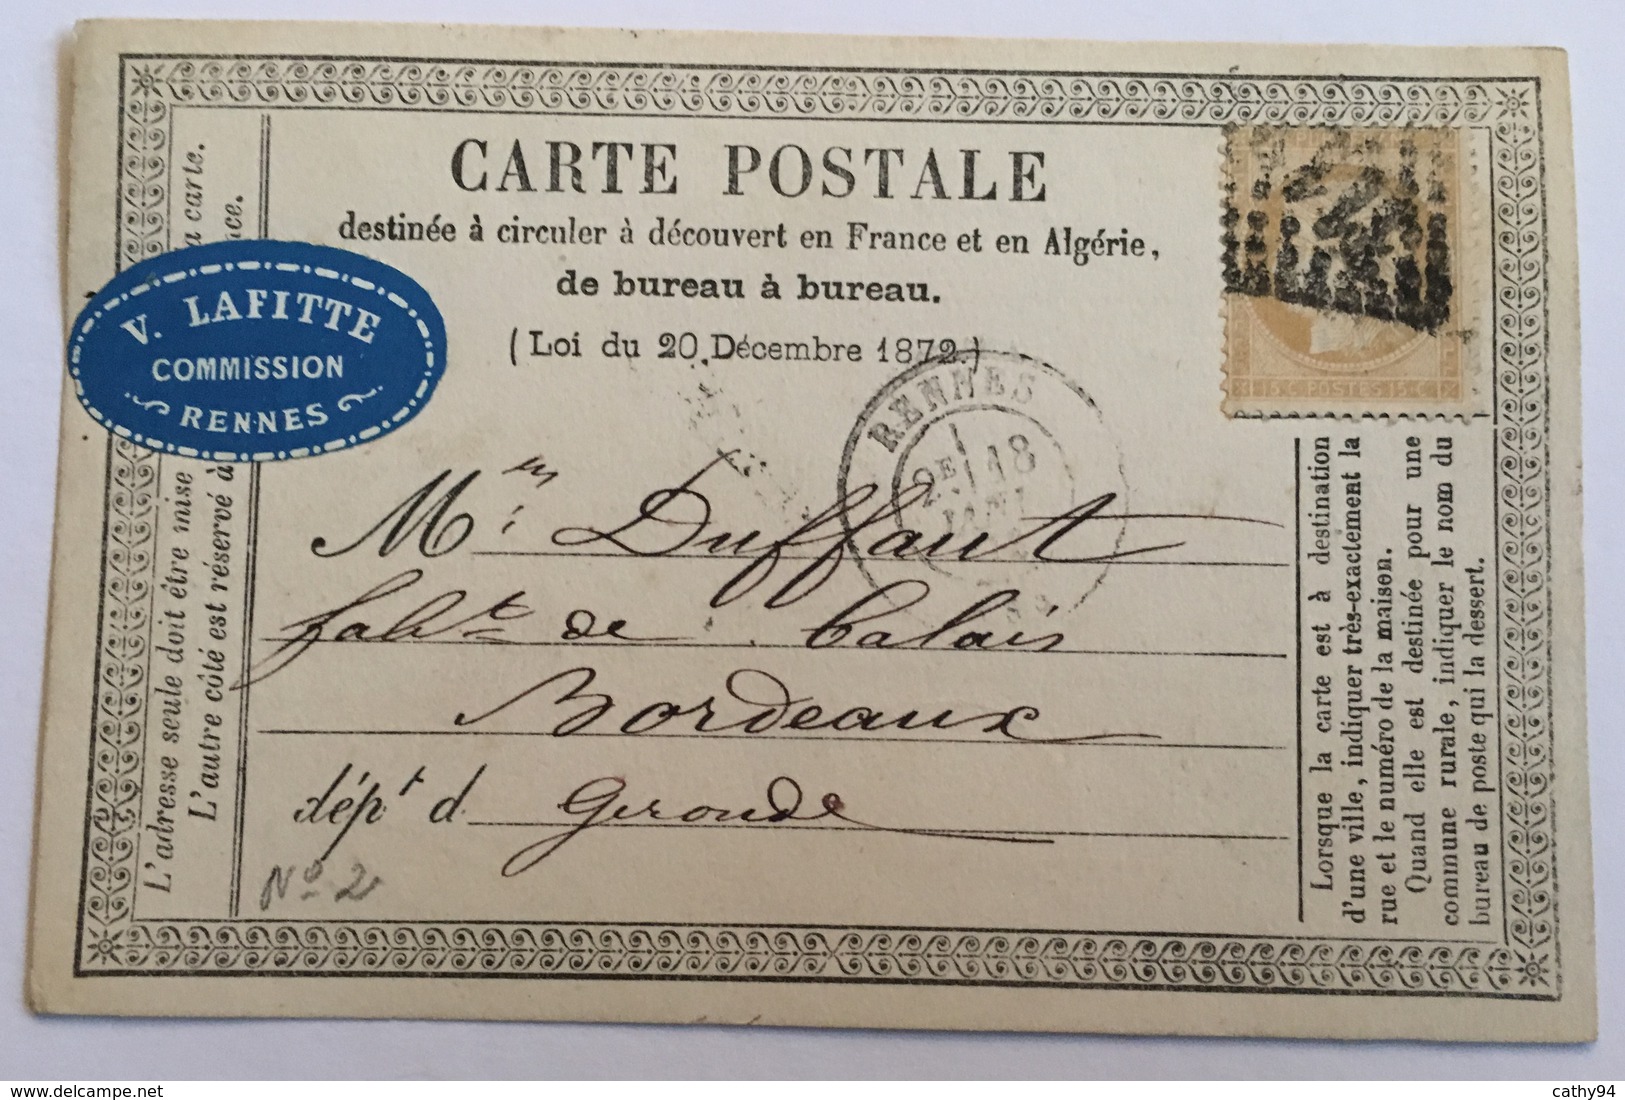 CARTE POSTALE
destinée à circuler à découvert en France et en Algérie,
de bureau à bureau.
(Loi du 20 Décembre 1872.)
V. LAFITTE
COMMISSION
RENNES
15 C. POSTES 15 C.
RENNES
2E
18
JANV
Mr Duffaut
fabt de Calais
Bordeaux
dépt d Gironde
No 2
L'adresse seule doit être mise
a carte.
L'autre côté est réservé à
nce.
Lorsque la carte est à destination
d'une ville, indiquer très-exactement la
rue et le numéro de la maison.
Quand elle est destinée pour une
commune rurale, indiquer le nom du
bureau de poste qui la dessert.
delcampe.net
cathy94